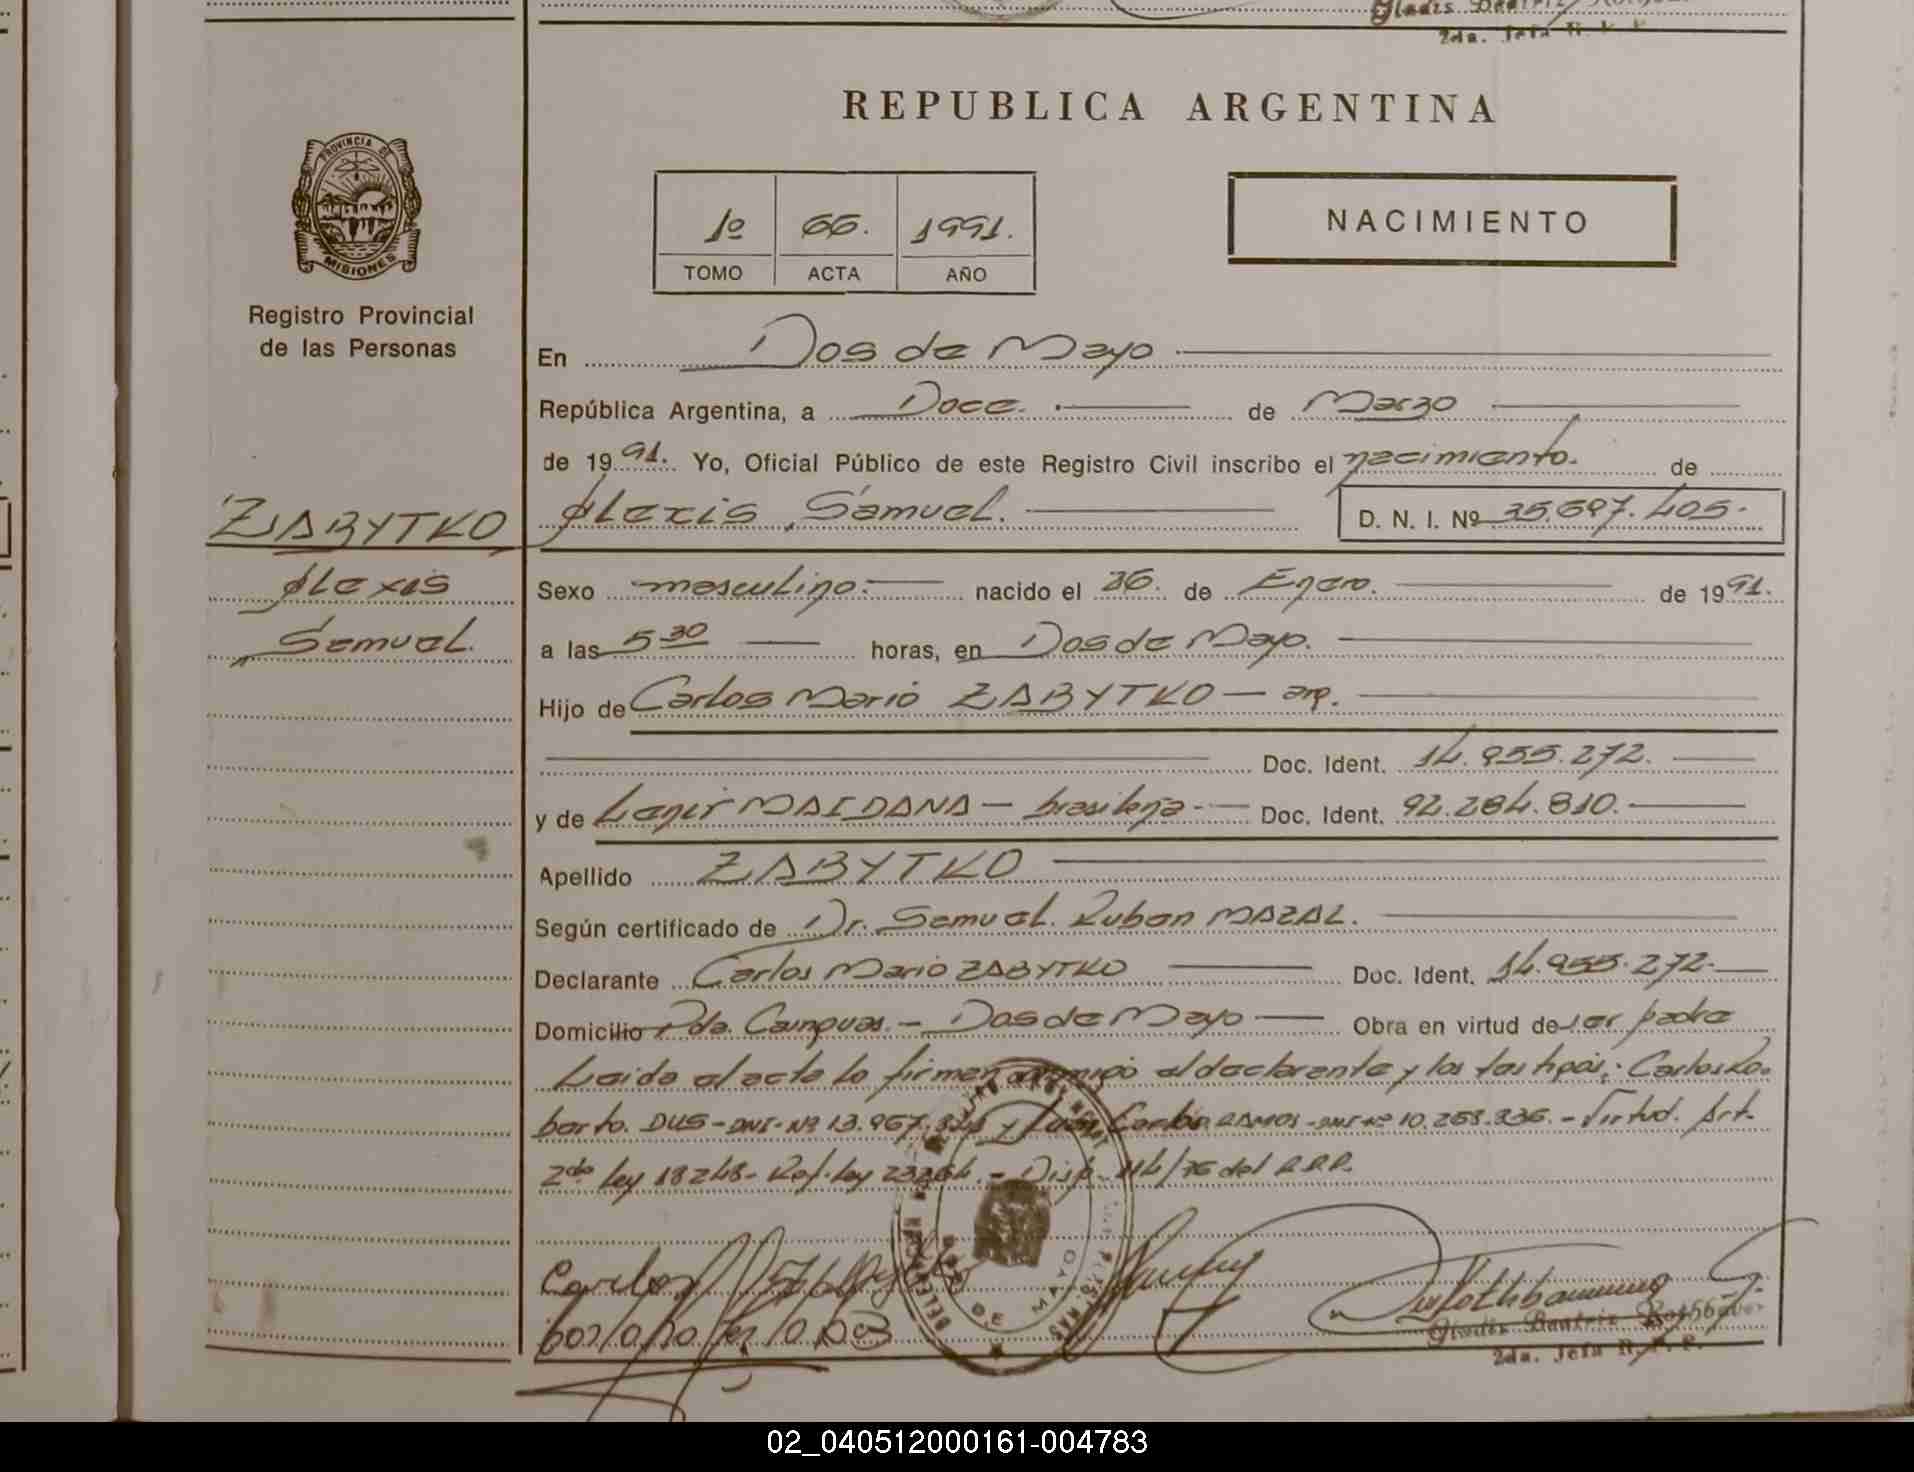 Gladis Beatriz
2da. Jefa R. P. P.
REPUBLICA ARGENTINA
PROVINCIA DE
MISIONES
Registro Provincial
de las Personas
1º 66. 1991.
TOMO ACTA AÑO
NACIMIENTO
En Dos de Mayo
República Argentina, a Doce. de Marzo
de 1991. Yo, Oficial Público de este Registro Civil inscribo el nacimiento. de
ZABYTKO Alexis Samuel. D. N. I. Nº 35.697.405.
Alexis
Samuel.
Sexo masculino. nacido el 26. de Enero. de 1991.
a las 5 30 horas, en Dos de Mayo.
Hijo de Carlos Mario ZABYTKO — arg.
Doc. Ident. 14.955.272.
y de Lenir MAIDANA — brasileña. Doc. Ident. 92.284.810.
Apellido ZABYTKO
Según certificado de Dr. Samuel. Ruben MAZAL.
Declarante Carlos Mario ZABYTKO Doc. Ident. 14.955.272.
Domicilio Pda. Cainguas. — Dos de Mayo Obra en virtud de ser padre
Leida el acta lo firman conmigo el declarante y los testigos: Carlos Ro-
berto. DUS - DNI-Nº 13.967. y Carlos RAMOS - DNI-Nº 10.268.336. - Virtud. Art.
2do ley 18248 - Ref. ley 23264. - Disp. 114/76 del R.P.P.
DE MAYO
Gladis Beatriz
2da. Jefa R. P. P.
02_040512000161-004783